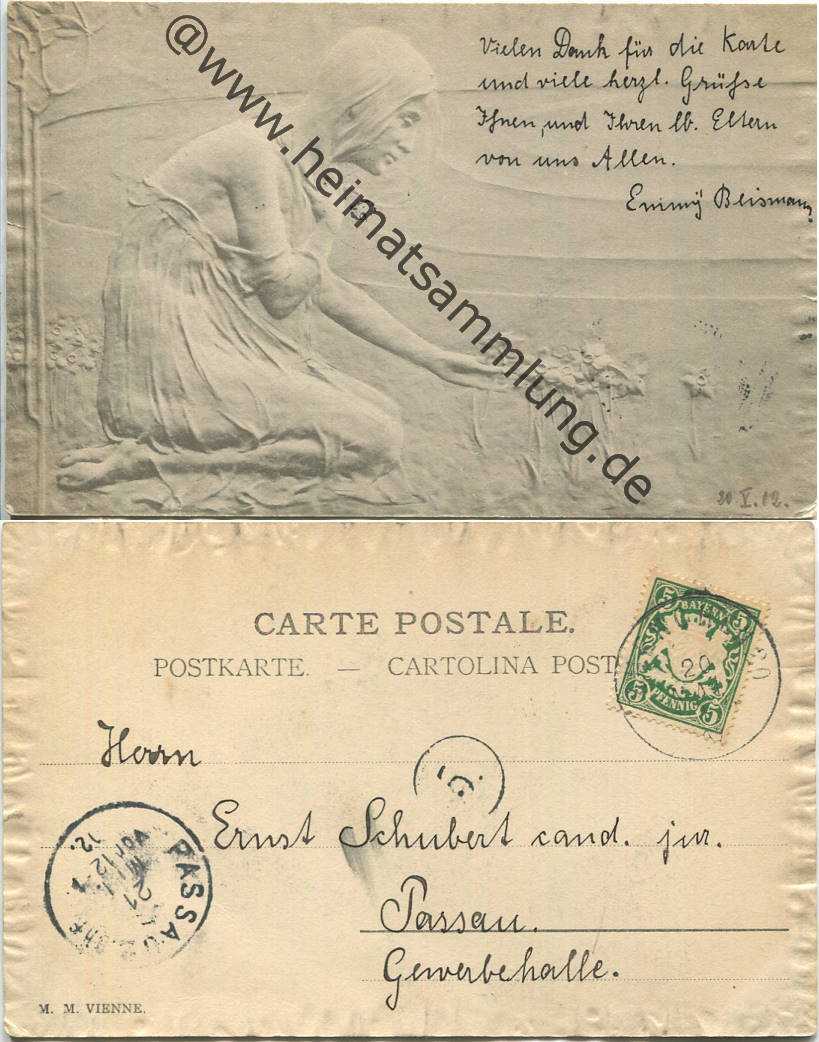 Vielen Dank für die Karte
und viele herzl. Grüsse
Ihnen, und Ihren lb. Eltern
von uns Allen.
Emmÿ Beismann
@www.heimatsammlung.de
20 V. 12.
CARTE POSTALE.
POSTKARTE. — CARTOLINA POST
5 BAYERN 5
5 PFENNIG 5
20
Herrn
Ernst Schubert cand. jur.
Passau.
Gewerbehalle.
PASSAU 2
21
Vor 12
12.
M. M. VIENNE.